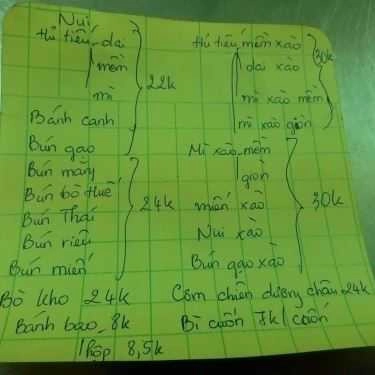 Nui
Hủ tiếu dai
mềm
mì
22k
Bánh canh
Bún gạo
Bún mắm
Bún bò Huế
Bún Thái
Bún riêu
Bún miến
24k
Bò kho 24k
Bánh bao 8k
1 hộp 8,5k
Hủ tiếu mềm xào
dai xào
mì xào mềm
mì xào giòn
30k
Mì xào mềm
giòn
miến xào
Nui xào
Bún gạo xào
30k
Cơm chiên dương châu 24k
Bì cuốn 7k/cuốn